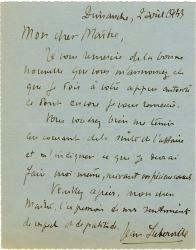 Dimanche, 2 avril 1943
Mon cher Maître,
Je vous remercie de la bonne
nouvelle que vous m'annoncez et
que je dois à votre appui autorisé
ce dont encore je vous remercie.
Vous voudrez bien me tenir
au courant des suites de l'affaire
et m'indiquer ce que je devrai
faire moi-même, suivant
Veuillez agréer, mon cher
Maître, l'expression de mes sentiments
de respect et de gratitude.
Jean